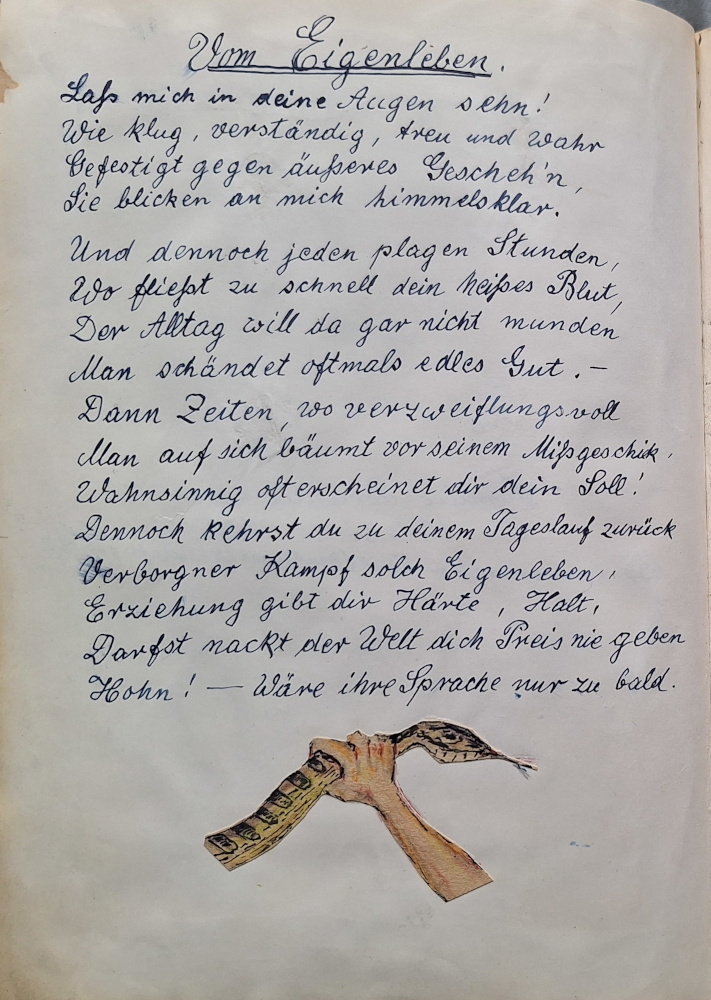 Vom Eigenleben.
Laß mich in deine Augen sehn!
Wie klug, verständig, treu und wahr
Gefestigt gegen äußeres Gescheh'n,
Sie blicken an mich himmelsklar.
Und dennoch jeden plagen Stunden,
Wo fließt zu schnell dein heißes Blut,
Der Alltag will da gar nicht munden
Man schändet oftmals edles Gut. –
Dann Zeiten, wo verzweiflungsvoll
Man auf sich bäumt vor seinem Mißgeschik,
Wahnsinnig oft erscheinet dir dein Soll!
Dennoch kehrst du zu deinem Tageslauf zurück
Verborgner Kampf solch Eigenleben,
Erziehung gibt dir Härte, Halt,
Darfst nackt der Welt dich Preis nie geben
Hohn! — Wäre ihre Sprache nur zu bald.